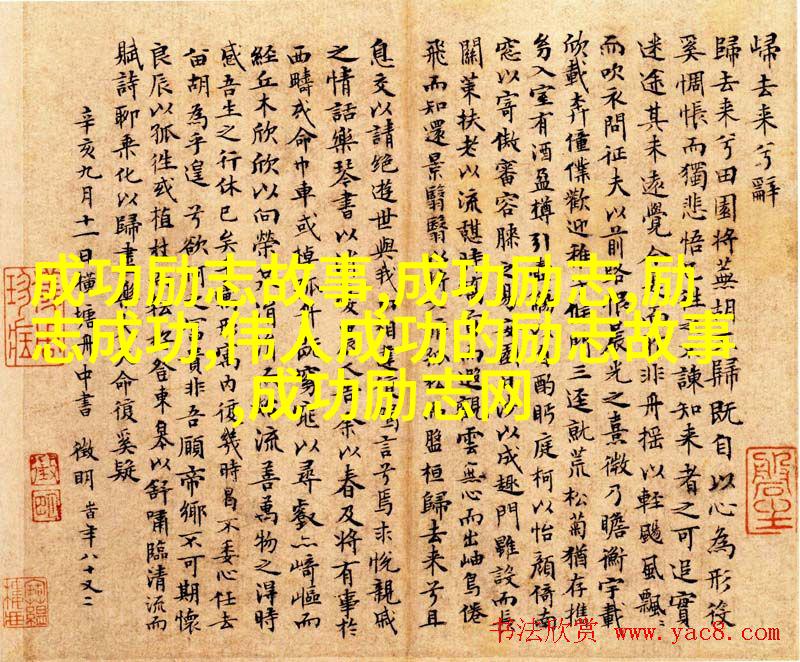 歸去来兮辭
歸去来兮田園將蕪胡歸既自以心為形役
奚惆悵而獨悲悟已往之諫知来者之可追實
迷途其未遠覺今非舟摇以輕颺風飄〻
而吹衣問征夫以前路恨晨光之熹微乃瞻衡宇載
欣載奔僮僕歡迎稚候三逕就荒松菊猶存攜
幼入室有酒盈樽引壺酌眄庭柯以怡顏倚南
窓以寄傲審容膝之易園以成趣門雖設而長
關策扶老以流憩時而遐觀雲無心而出岫鳥倦
飛而知還景翳翳以盤桓歸去来兮且
息交以請絕遊世與我相遺駕言兮焉求悅親戚
之情話樂琴書以人告余以春及將有事於
西疇或命巾車或棹孤舟既窈窕以尋壑亦崎嶇而
經丘木欣欣以向榮流善萬物之得時
感吾生之行休已矣形內復幾時曷不委心任去
留胡為乎遑兮欲何之貴非吾願帝鄉不可期懷
良辰以孤往或植杖登東皋以舒嘯臨清流而
賦詩聊乘化以歸盡命復奚疑
辛亥九月十一日橫塘舟中書 徵明 昔年八十又二
成功励志故事,成功励志,励
志成功,伟人成功的励志故事
,成功励志网
书法欣赏 www.yac8.com